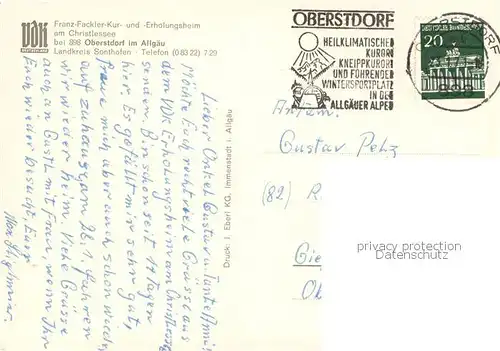 VdK
DEUTSCHLAND
Franz-Fackler-Kur- und -Erholungsheim
am Christlessee
bei 898 Oberstdorf im Allgäu
Landkreis Sonthofen · Telefon (08322) 729
Lieber Onkel Gustav u. Tante Anni!
Möchte Euch recht viele Grüsse aus
dem VDK Erholungsheim am Christlessee
senden. Bin schon seit 17 Tagen
hier. Es gefällt mir sehr gut,
freue mich aber auch schon wieder
auf zuhause, am 28.1. fahren
wir wieder heim. Viele Grüsse
auch an Gustl mit Frau, wenn Ihr
Euch wieder besucht. Euer
Druck: J. Eberl KG, Immenstadt i. Allgäu
OBERSTDORF
HEILKLIMATISCHER
KURORT
KNEIPPKURORT
UND FÜHRENDER
WINTERSPORTPLATZ
IN DEN
ALLGÄUER ALPEN
OBERSTDORF
898
20
Gustav Pelz
(82) R
Gie
Ob
privacy protection
Datenschutz